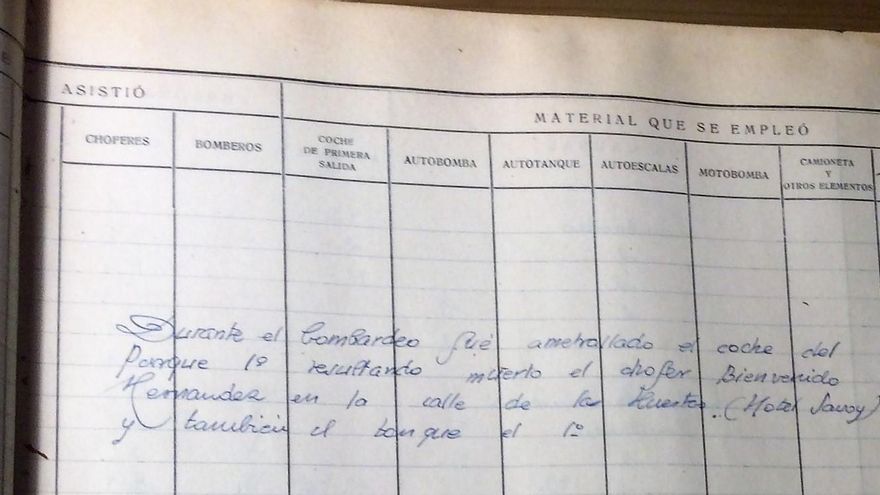 ASISTIÓ
MATERIAL QUE SE EMPLEÓ
CHOFERES
BOMBEROS
COCHE
DE PRIMERA
SALIDA
AUTOBOMBA
AUTOTANQUE
AUTOESCALAS
MOTOBOMBA
CAMIONETA
Y
OTROS ELEMENTOS
Durante el bombardeo fué ametrallado el coche del
Parque 1º resultando muerto el chofer Bienvenido
Hernandez en la calle de las Huertas. (Hotel Savoy)
y tambien el tanque el 1º